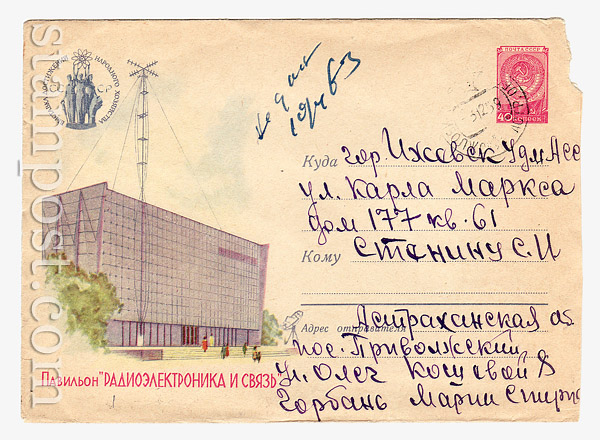 ВЫСТАВКА ДОСТИЖЕНИЙ НАРОДНОГО ХОЗЯЙСТВА
СССР
ПОЧТА СССР
40 КОПЕЕК
Куда гор. Ижевск Удм Асс
ул. Карла Маркса
дом 177 кв. 61
Кому Станину С. И
Адрес отправителя Астраханская об.
пос. Приволжский
ул. Олег Кошевой 8
Горбань Марии Спирид
Павильон "РАДИОЭЛЕКТРОНИКА И СВЯЗЬ"
stampost.com
stampost.com